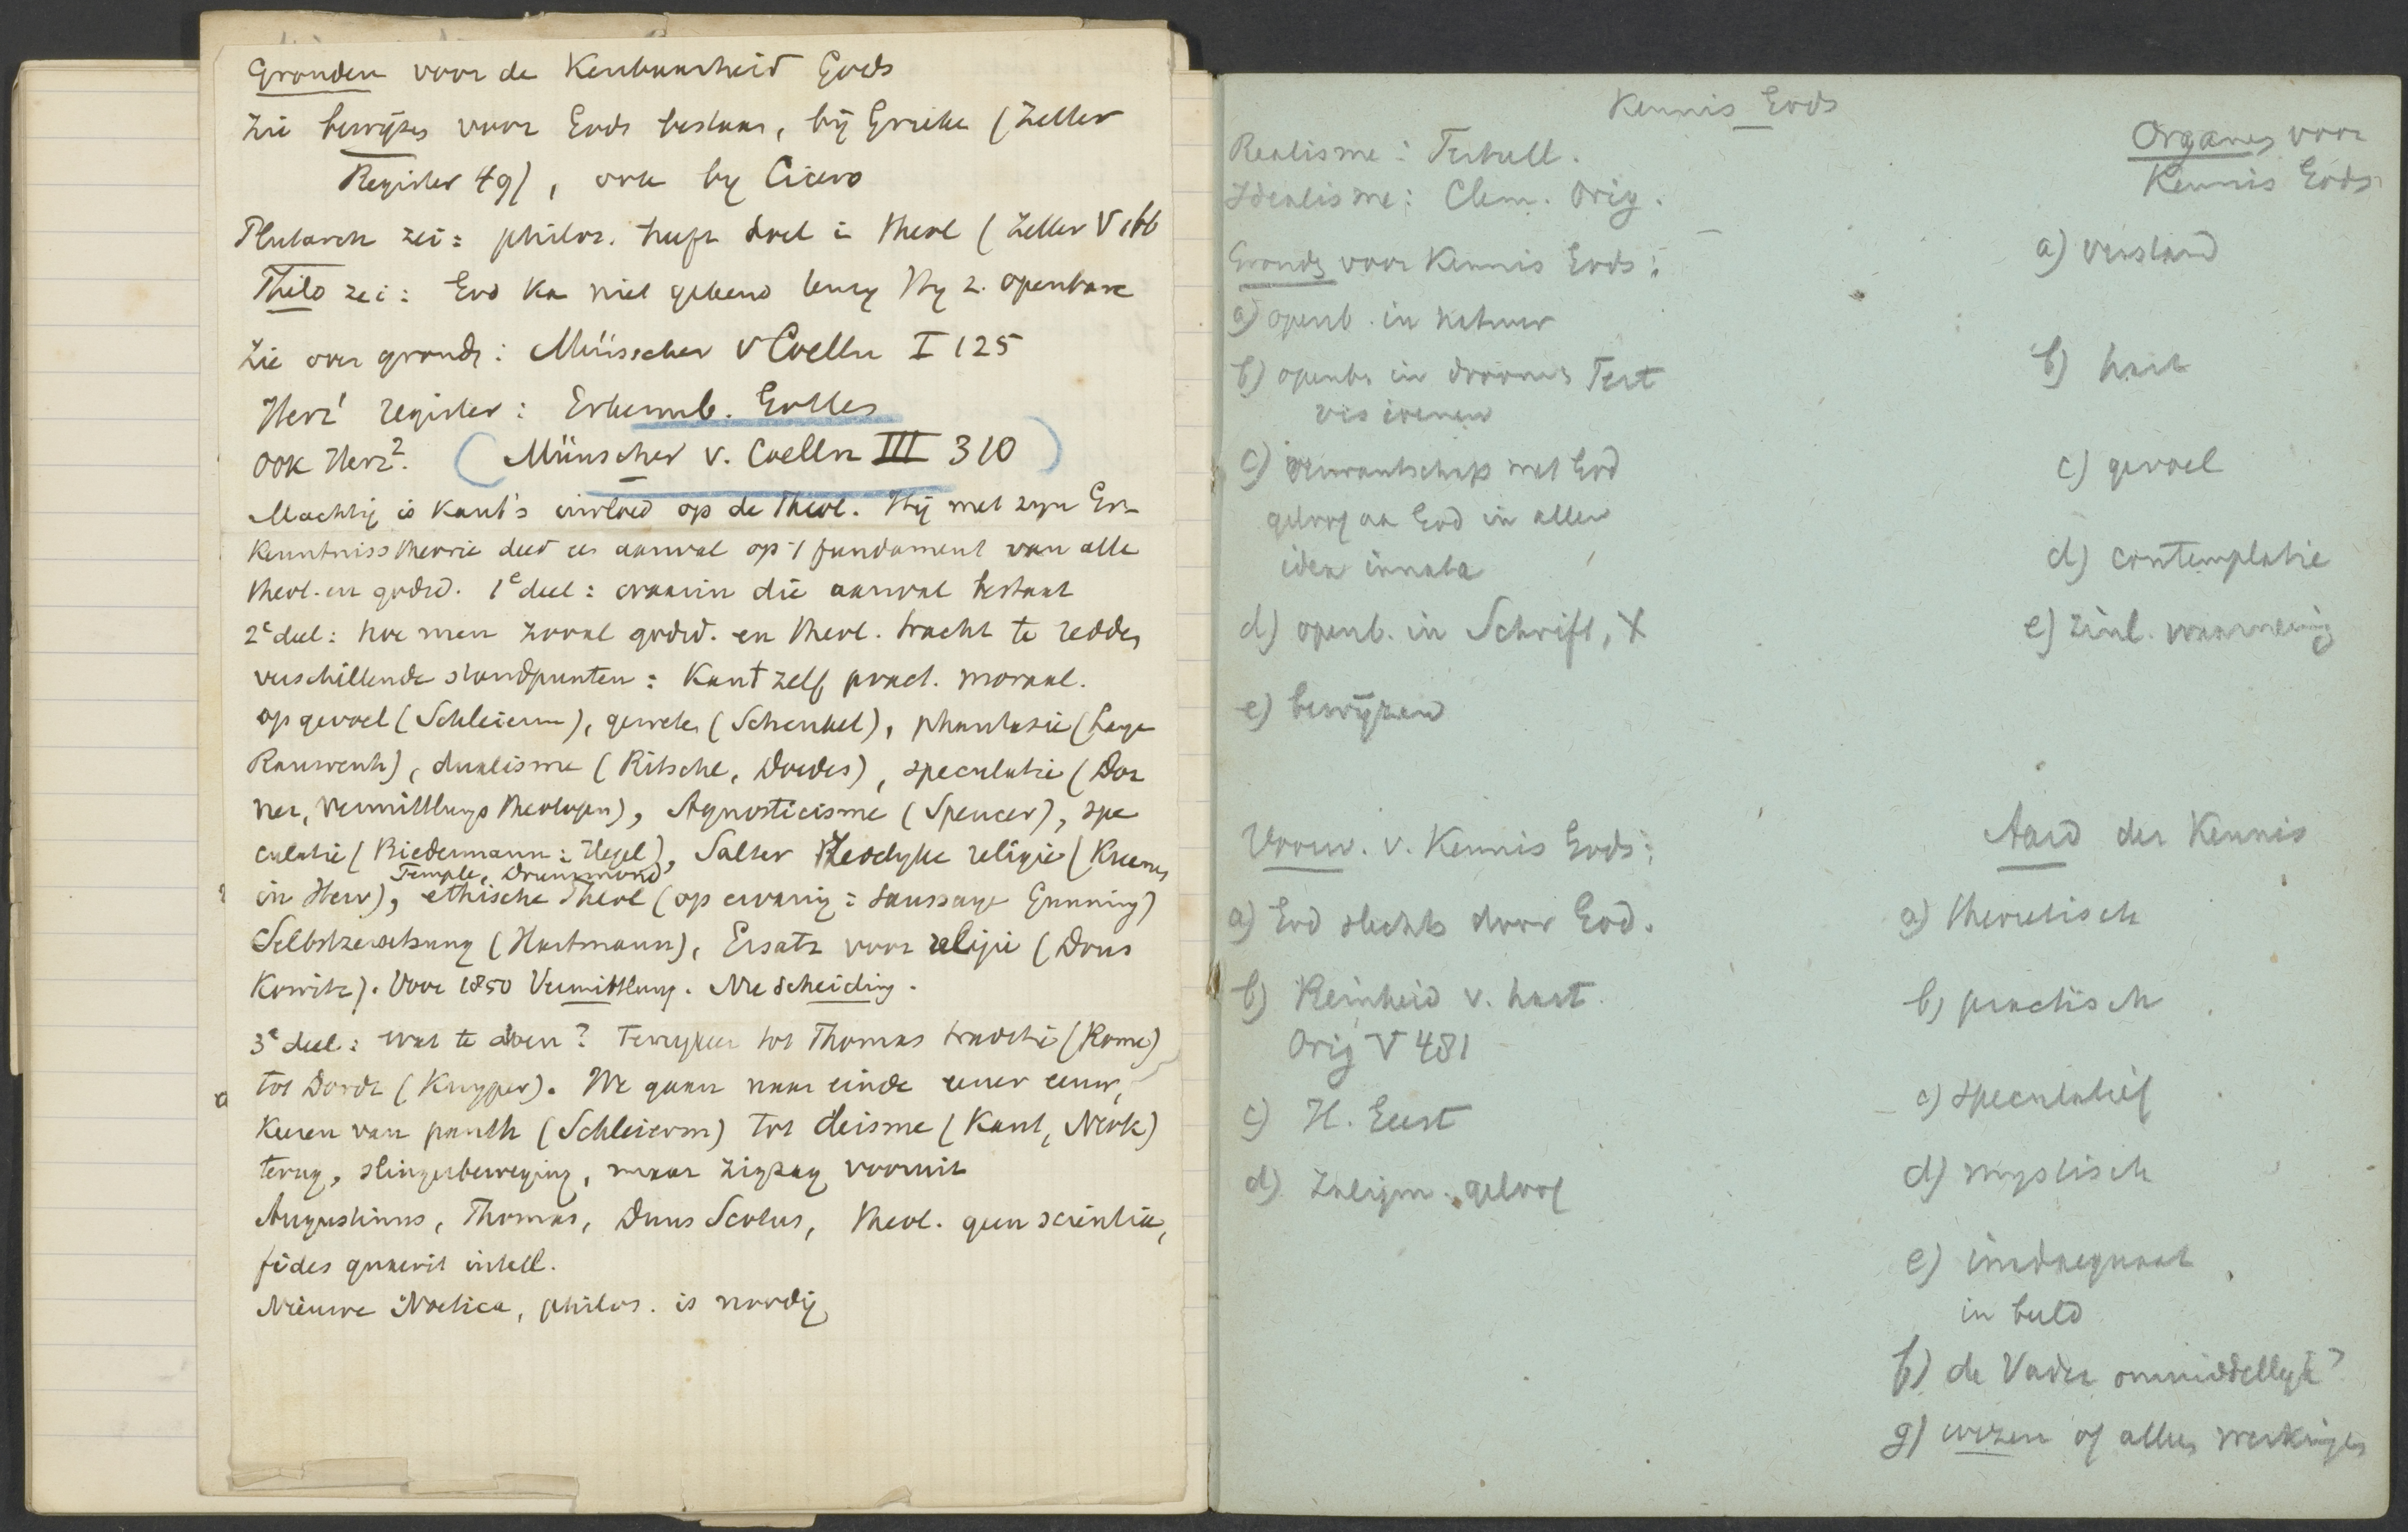 Gronden voor de Kenbaarheid Gods
Zie bewijzen voor Gods bestaan, bij Grieken (Zeller
Register 49), ook by Cicero
Plutarch zei: philos. heeft doel in theol (Zeller V 166
Philo zei: God kan niet gekend tenzij Hij z. openbare
Zie over gronden: Münscher v Coelln I 125
Herz¹ register: Erkennb. Gottes
ook Herz². (Münscher v. Coelln III 310)
Machtig is Kant's invloed op de Theol. Hij met zijn Er-
kenntnisstheorie deed een aanval op 't fundament van alle
theol. en godsd. 1e deel: waarin die aanval bestaat
2e deel: hoe men zooal godsd. en theol. tracht te redden
verschillende standpunten: Kant zelf pract. moraal.
op gevoel (Schleierm), geweten (Schenkel), phantasie (Lange
Rauwenh), dualisme (Ritschl, Doedes), speculatie (Dor
ner, Vermittlungs theologen), Agnosticisme (Spencer), spe
culatie (Biedermann: Hegel), Salter Zedelyke religie (Kuenen
Temple, Drummond
in Herv), ethische Theol (op ervaring: Saussaye Gunning)
Selbstzersetzung (Hartmann), Ersatz voor religie (Dous
Kowitz). Voor 1850 Vermittlung. Nu scheiding.
3e deel: wat te doen? Terugkeer tot Thomas traditie (Rome)
a tot Dordt (Kuyper). We gaan naar einde eener eeuw,
Keeren van panth (Schleierm) tot deisme (Kant, Neok)
terug, slingerbeweging, maar zigzag vooruit
Augustinus, Thomas, Duns Scotus, theol. geen scientia,
fides quaerit intell.
Nieuwe Noetica, philos. is noodig
Kennis Gods
Realisme: Tertull.
Idealisme: Clem. Orig.
Gronden voor Kennis Gods:
a) openb. in natuur
b) openb in droomen Tert
visioenen
c) verwantschap met God
geloof aan God in allen
idea innata
d) openb. in Schrift, X
e) bewijzen
Organen voor
Kennis Gods
a) verstand
b) hart
c) gevoel
d) contemplatie
e) zinl. waarneming
Voorw. v. Kennis Gods:
a) God slechts door God.
b) Reinheid v. hart.
Orig V 481
c) H. Geest
d) Zaligm. geloof
Aard der Kennis
a) theoretisch
b) practisch
c) speculatief
d) mystisch
e) inadaequaat
in beeld
f) de Vader onmiddellijk?
g) wezen of alleen werkingen